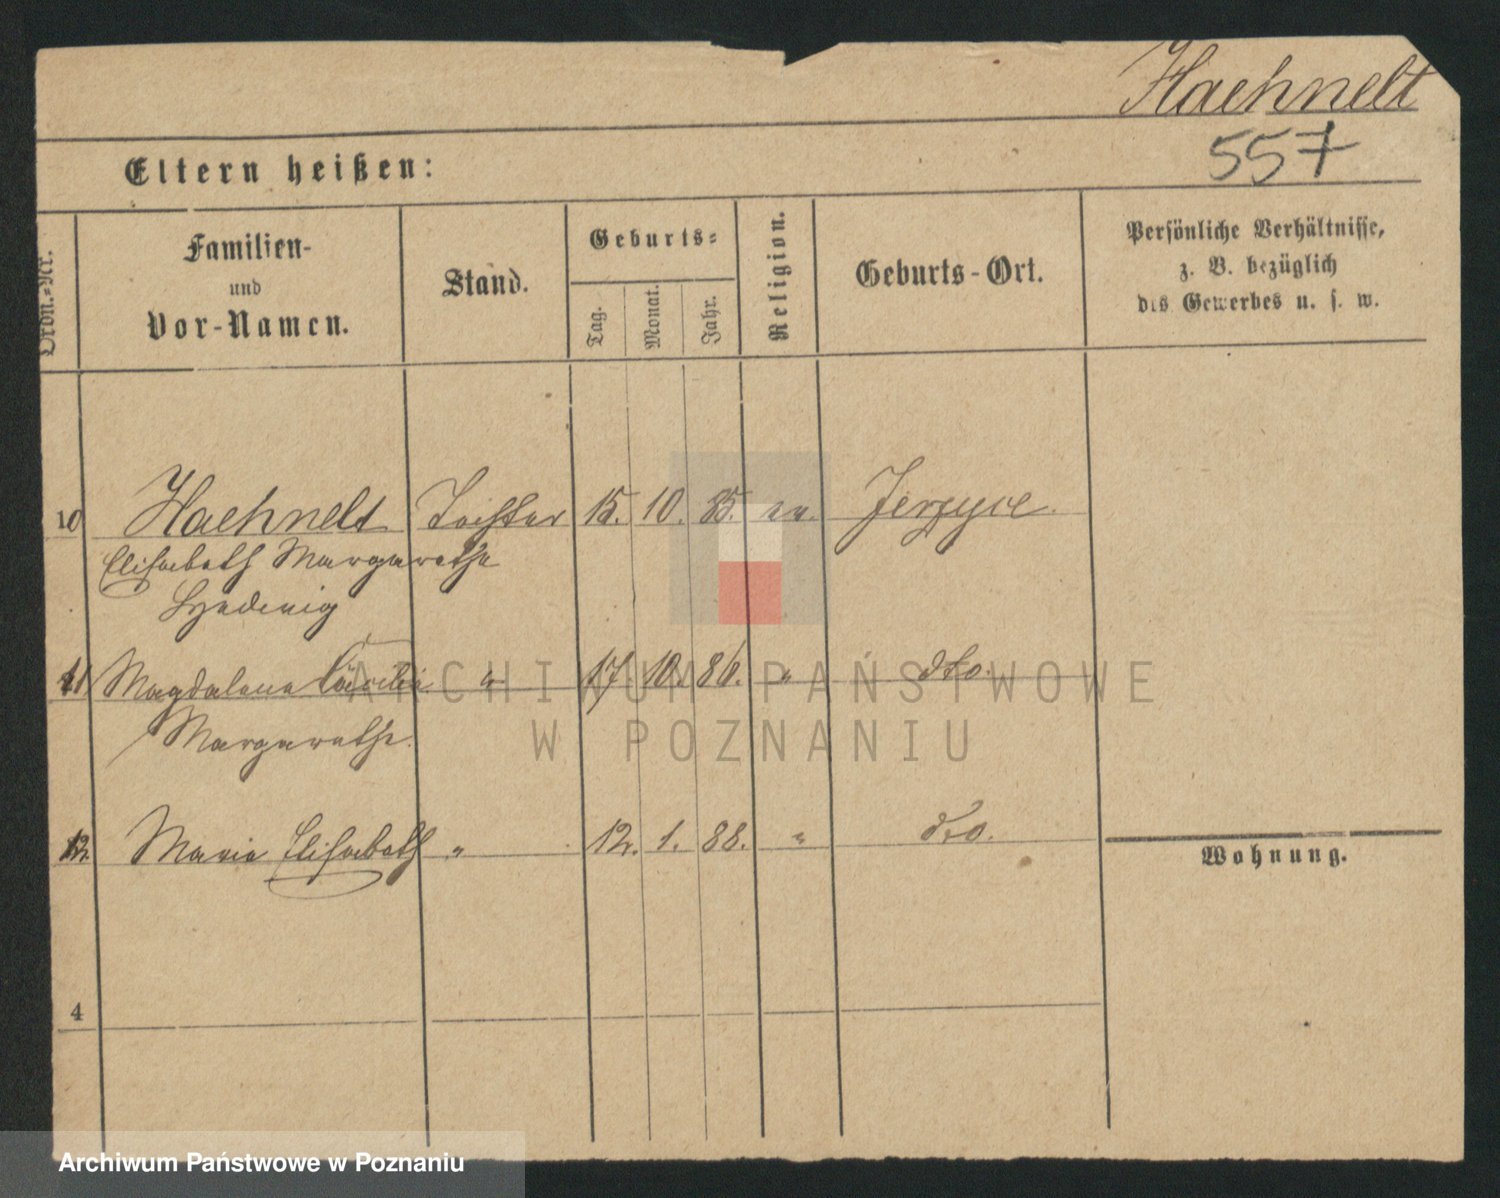 Haehnelt
557
Eltern heißen:
Ordn.-Nr.
Familien-
und
Vor-Namen.
Stand.
Geburts-
Tag.
Monat.
Jahr.
Religion.
Geburts-Ort.
Persönliche Verhältnisse,
z. B. bezüglich
des Gewerbes u. s. w.
10 Haehnelt Tochter 15. 10. 85. ev. Jerzyce.
Elisabeth Margarethe
Hedwig
11 Magdalena Cäcilie " 17. 10. 86. " dto.
Margarethe.
12. Maria Elisabeth " 12. 1. 88. " dto.
Wohnung.
4
ARCHIWUM PAŃSTWOWE
W POZNANIU
Archiwum Państwowe w Poznaniu